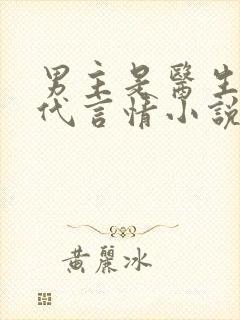 男主是醫生
代言情小說
黃麗冰